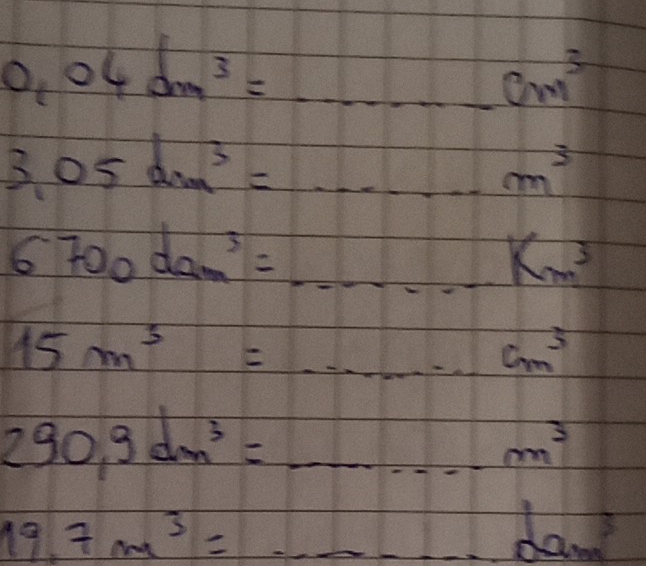 0,04 dm³ = ------- cm³
3,05 dm³ = ------ m³
6700 dam³ = ------ Km³
15 m³ = ------ cm³
290,9 dm³ = ------ m³
19,7 m³ = ------ dam³